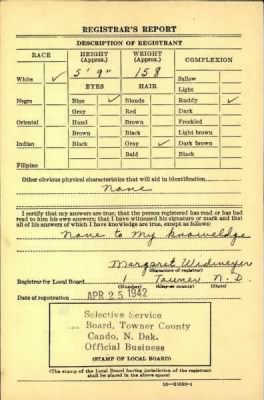 REGISTRAR'S REPORT
DESCRIPTION OF REGISTRANT
RACE HEIGHT (Approx.) WEIGHT (Approx.) COMPLEXION
5' 9" 158
White ✓ Sallow
EYES HAIR Light
Negro Blue ✓ Blonde Ruddy ✓
Gray Red Dark
Oriental Hazel Brown Freckled
Brown Black Light brown
Indian Black Gray ✓ Dark brown
Bald Black
Filipino
Other obvious physical characteristics that will aid in identification
None
I certify that my answers are true; that the person registered has read or has had
read to him his own answers; that I have witnessed his signature or mark and that
all of his answers of which I have knowledge are true, except as follows:
None to My knoweldge
Margaret
(Signature of registrar)
Registrar for Local Board Towner N. D.
(Number) (City or county) (State)
Date of registration APR 25 1942
Selective Service
Board, Towner County
Cando, N. Dak.
Official Business
(STAMP OF LOCAL BOARD)
(The stamp of the Local Board having jurisdiction of the registrant
shall be placed in the above space.)